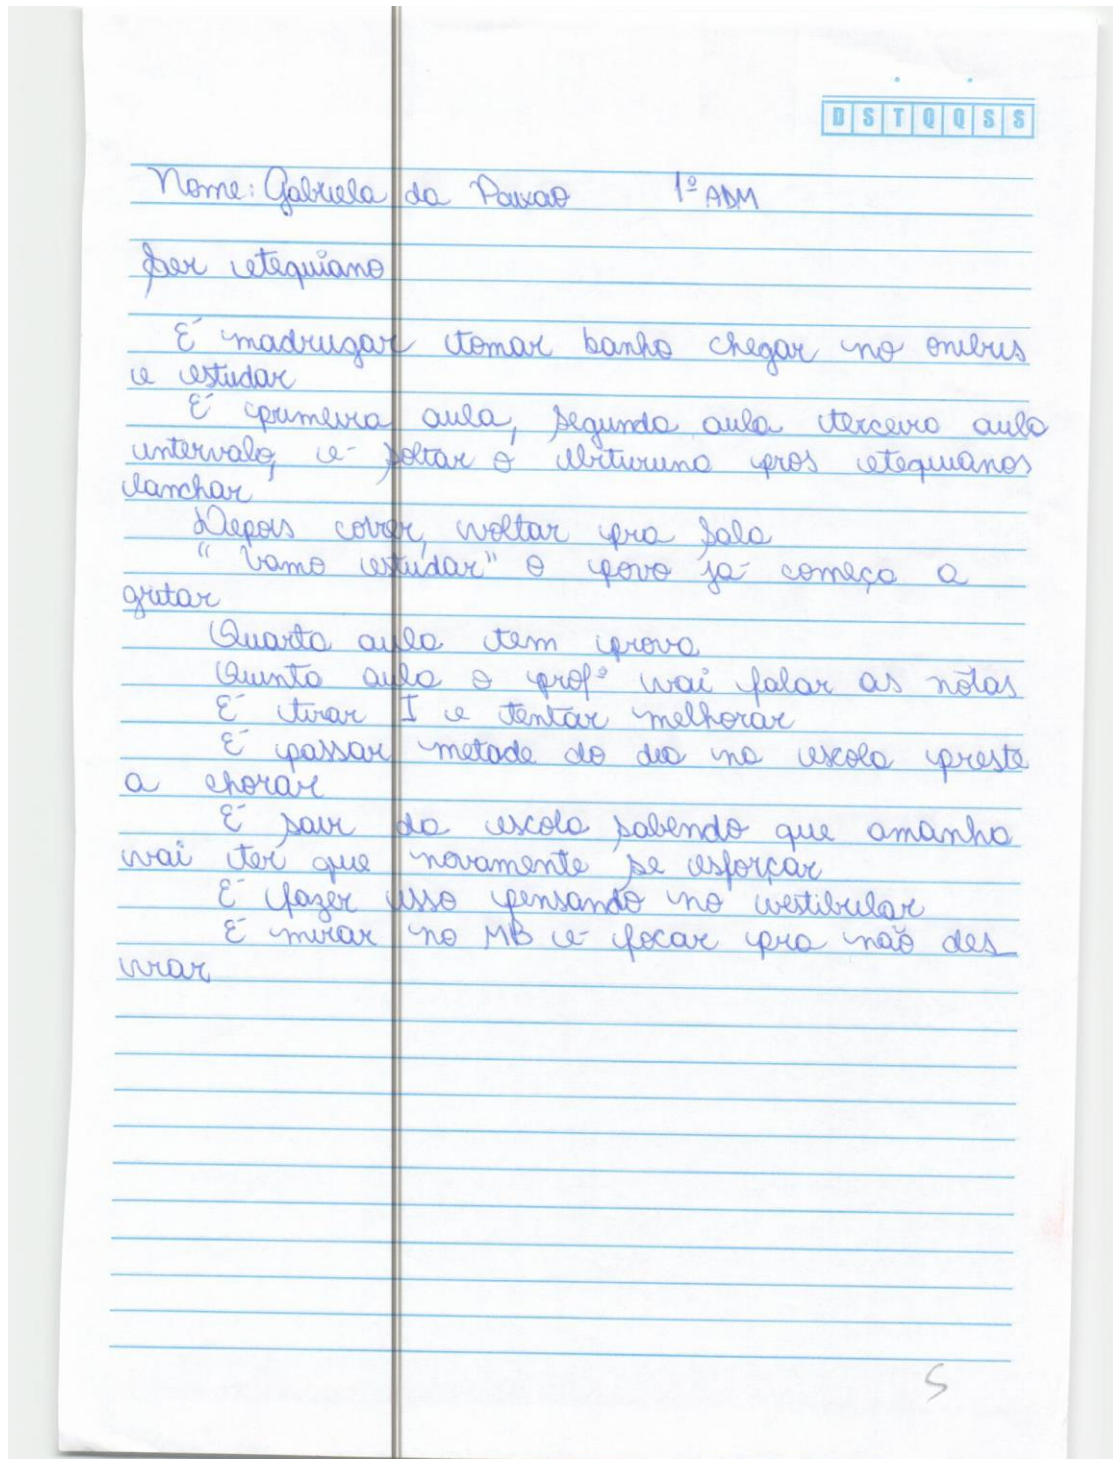 D S T Q Q S S
Nome: Gabriela da Paixao 1º ADM
Ser etequiano
É madrugar tomar banho chegar no onibus
e estudar
É primeira aula, segunda aula terceiro aula
intervalo, é soltar o pros etequianos
lanchar
Depois correr, voltar pra sala
"Vamo estudar" o povo já começa a
gritar
Quarta aula tem prova
Quinta aula o profº vai falar as nótas
É tirar I e tentar melhorar
É passar metade do dia na escola preste
a chorar
É sair da escola sabendo que amanha
vai ter que novamente se esforçar
É fazer isso pensando no vestibular
É mirar no MB é focar pra não des
virar
5